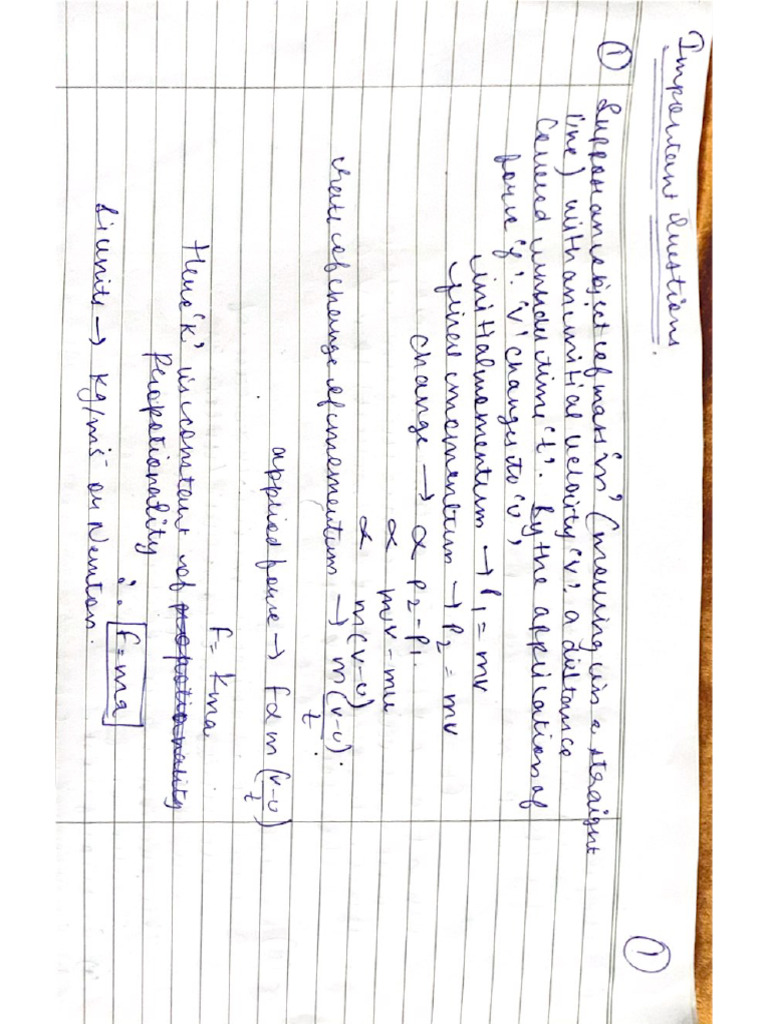 Important Questions.
1
① Suppose an object of mass 'm' (moving in a straight
line) with an initial velocity 'v'. a distance
Covered under time 't'. By the application of
force 'f'. 'v' changes to 'v',
initial momentum → P1 = mv
final momentum → P2 = mv
Change → ∝ P2 - P1.
∝ mv - mu
∝ m(v-u)
rate of change of momentum → m(v-u)/t.
applied force → f ∝ m (v-u)/t
F = kma
Here 'k' is constant of propotionality
Propotionality
∴ F=ma
Si units → kg/ms- or Newton.